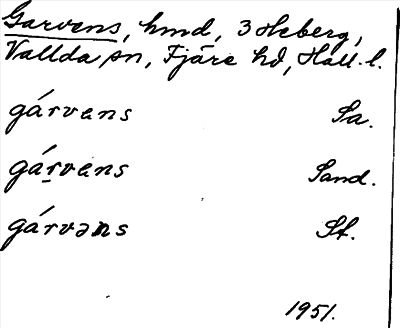 Garvens, hmd, 3 Heberg,
Vallda sn, Fjäre hd, Hall. l.
gárvens Sa.
gárvens Sand.
gárvəns St.
1951.